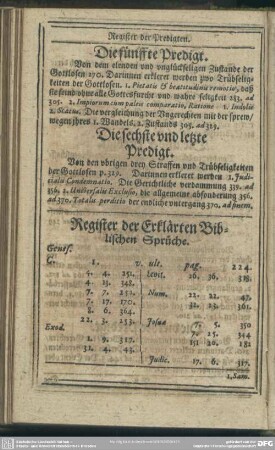 Register der Predigten.
Die fünffte Predigt.
Von dem elenden vnd vnglückseligen Zustande der
Gottlosen 270. Darinnen erkleret werden zwo Trübselig
keiten der Gottlosen. 1. Pietatis & beatitudinis remotio, daß
sie seind ohne alle Gottesfurcht vnd wahre seligkeit 283. ad
305. 2. Impiorum cum paleis comparatio, Ratione 1. Indolis
2. Status. Die vergleichung der Vngerechten mit der sprew/
wegen jhres 1. Wandels, 2. Zustands 305. ad 319.
Die sechste vnd letzte
Predigt.
Von den vbrigen drey Straffen vnd Trübseligkeiten
der Gottlosen p. 319. Darinnen erkleret werden 1. Judi-
cialis Condemnatio, Die Gerichtliche verdammung 339. ad
356. 2. Universalis Exclusio, die allgemeine absönderung 356.
ad 370. Totalis perditio der endliche vntergang 370. ad finem.
Register der Erklärten Bib-
lischen Sprüche.
Genes.
C. v. pag.
Levit. 26. 36.
Num. 22. 22. 47.
32. 23. 361.
7. 17. 170.
8. 6. 364.
22. 3. 253.
Josua 7. 5. 350
Exod.
1. 9. 317.
32. 4. 43.
Judic. 17. 6. 317.
1. Sam.